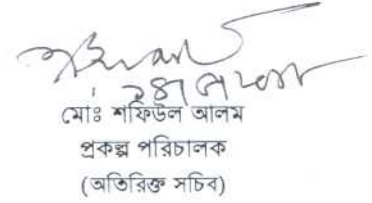 মোঃ শফিউল আলম
প্রকল্প পরিচালক
(অতিরিক্ত সচিব)